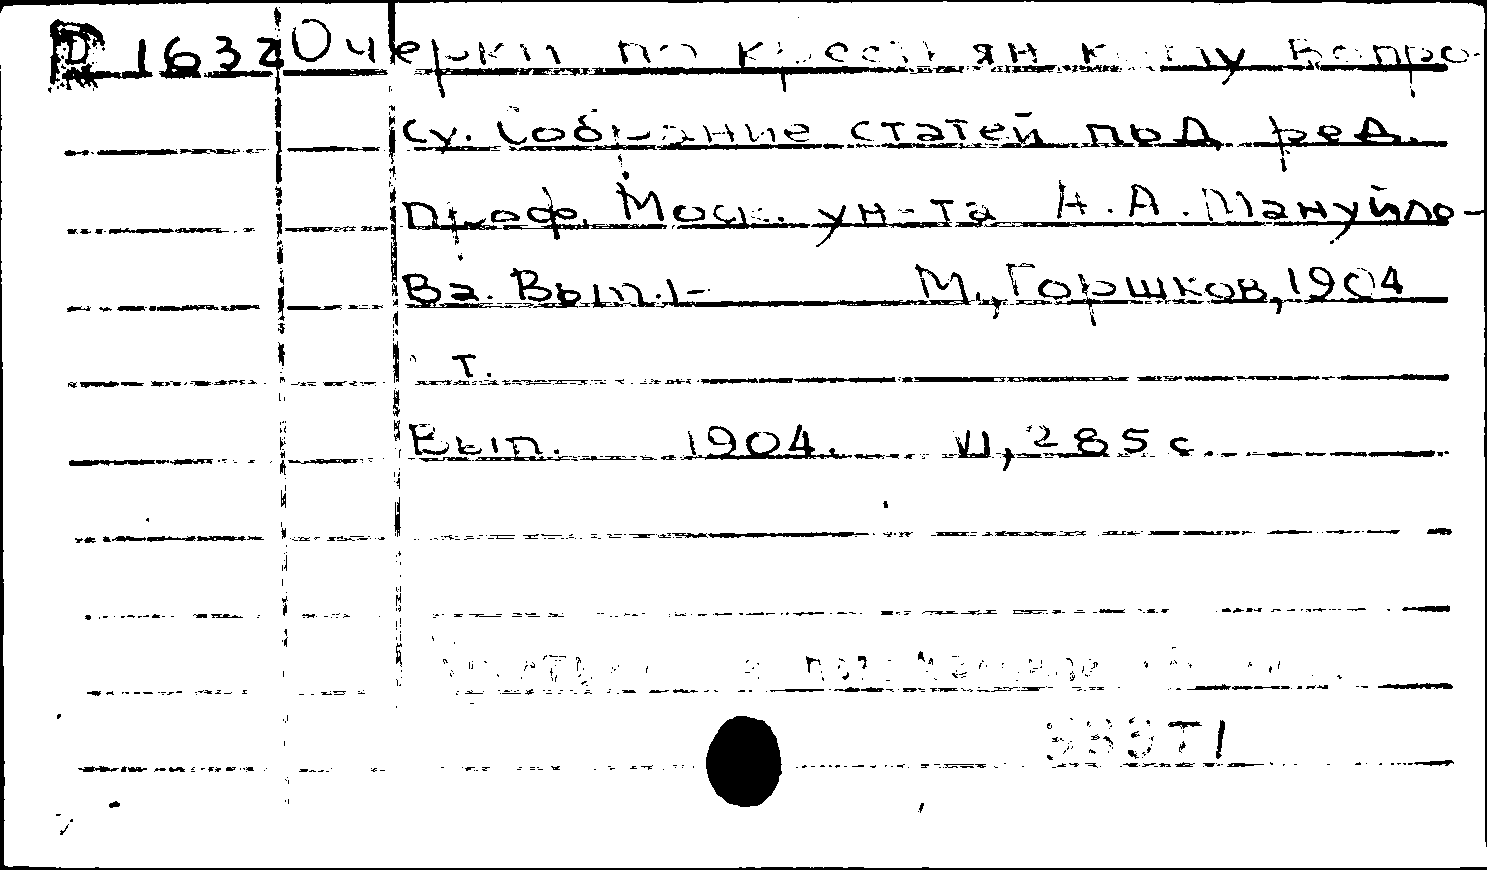 D 1632 Очерки по крестьянскому вопро-
су. Собрание статей под ред.
проф. Моск. ун-та А.А. Мануйло-
ва. Вып. 1- М., Горшков, 1904
т.
Вып. 1904. VI, 285 с.